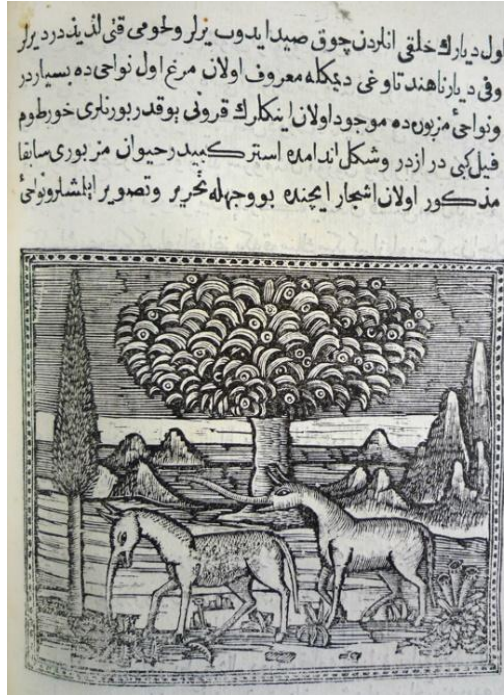 اول ديارك خلقى انلردن چوق صيد ايدوب يرلر ولحومى قتى لذيذدر ديرلر
وفى ديارناهند تاوغى ديمكله معروف اولان مرغ اول نواحى ده بسيار در
ونواحئ مزبوره ده موجود اولان اينكلرك قرونى يوقدر بورنلرى خورطوم
فيل كبى درازدر وشكل اندامده استر كبيدر حيوان مزبورى سابقا
مذكور اولان اشجار ايچنده بو وجهله تحرير وتصوير ايلمشلر ونواحئ